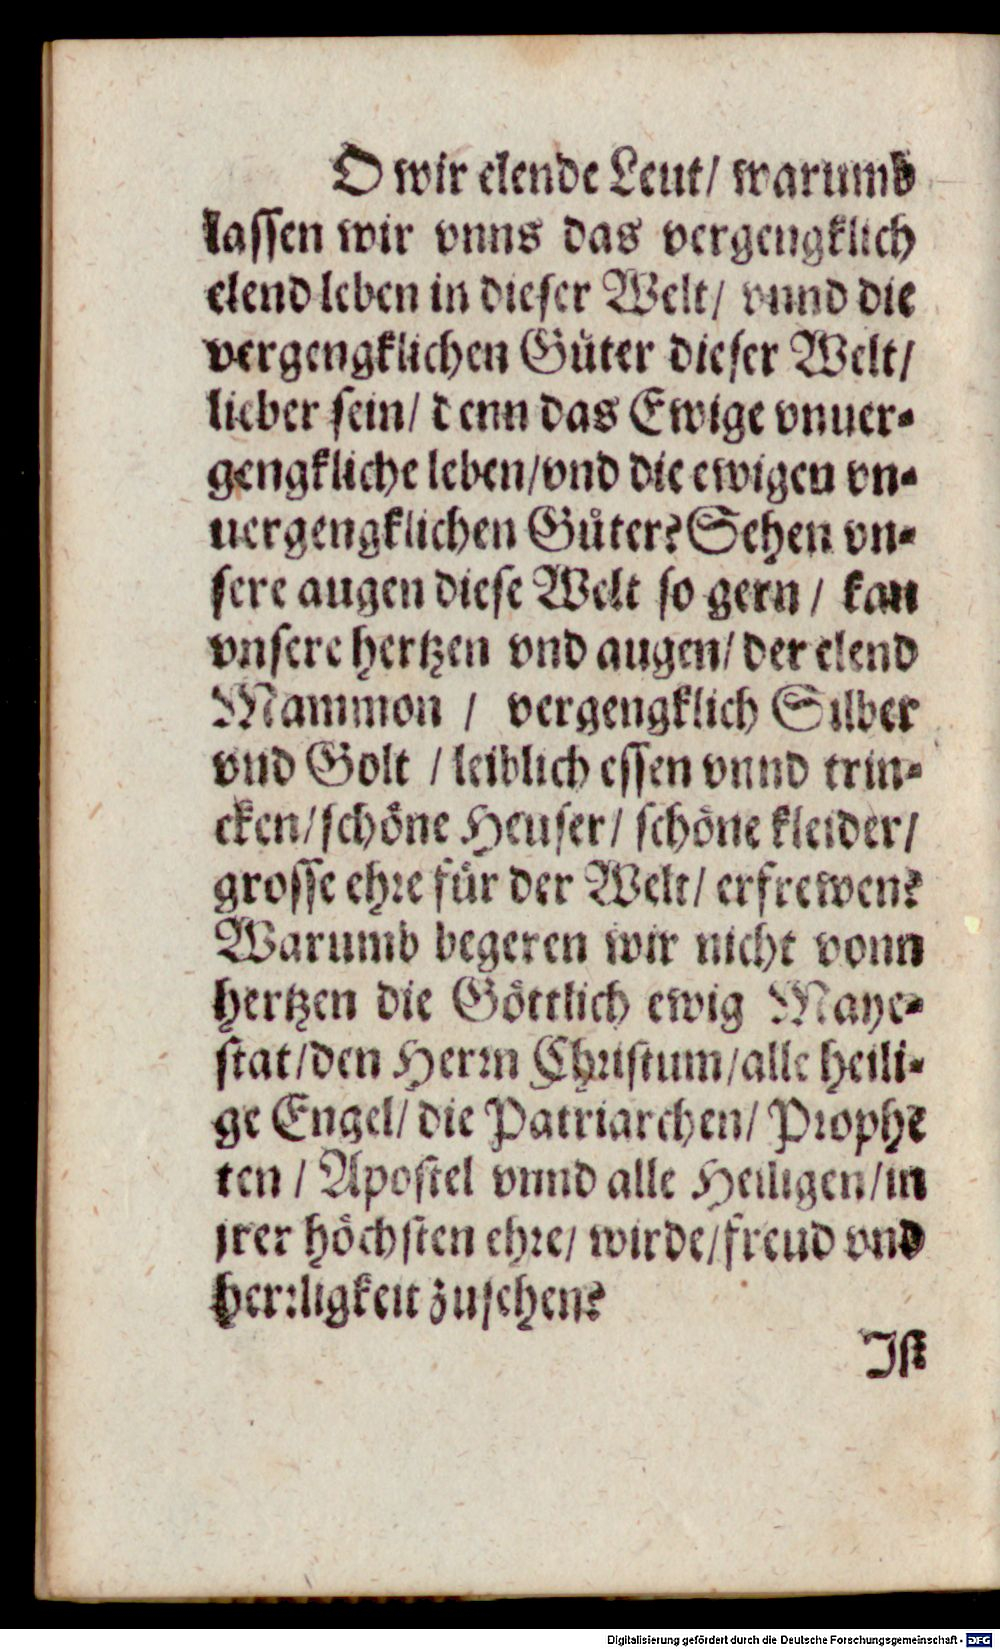 O wir elende Leut/ warumb
lassen wir vnns das vergengklich
elend leben in dieser Welt/ vnnd die
vergengklichen Gůter dieser Welt/
lieber sein/ denn das Ewige vnuer-
gengkliche leben/vnd die ewigen vn-
uergengklichen Gůter? Sehen vn-
sere augen diese Welt so gern / kan
vnsere hertzen vnd augen/ der elend
Mammon / vergengklich Silber
vnd Golt / leiblich essen vnnd trin-
cken/schöne Heuser/ schöne kleider/
grosse ehre für der Welt/ erfrewen?
Warumb begeren wir nicht vonn
hertzen die Göttlich ewig Maye-
stat/den Herrn Christum/alle heili-
ge Engel/ die Patriarchen/ Prophe
ten / Apostel vnnd alle Heiligen/in
jrer höchsten ehre/ wirde/freud vnd
herrligkeit zusehen?
Ist
Digitalisierung gefördert durch die Deutsche Forschungsgemeinschaft - DFG